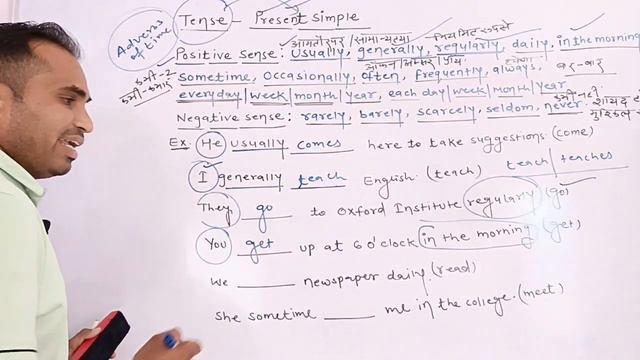 Adverbs of time
Tense – Present Simple
Positive sense: usually, generally, regularly, daily, in the morning
sometime, occasionally, often, frequently, always, बार-बार
everyday/week/month/year, each day/week/month/year
Negative sense: rarely, barely, scarcely, seldom, never
Ex. He usually comes here to take suggestions. (come)
I generally teach English. (teach) teach/teaches
They go to Oxford Institute regularly (go)
You get up at 6 o'clock in the morning (get)
We ____ newspaper daily. (read)
She sometime ____ me in the college. (meet)